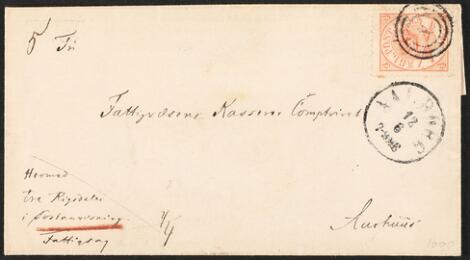 Fri
Fattigvæsenets Kasserer Comptoiret
AALBORG
12
6
Hermed
Een Rigsdaler
i Postanvisning.
Fattigsag
Aarhuus